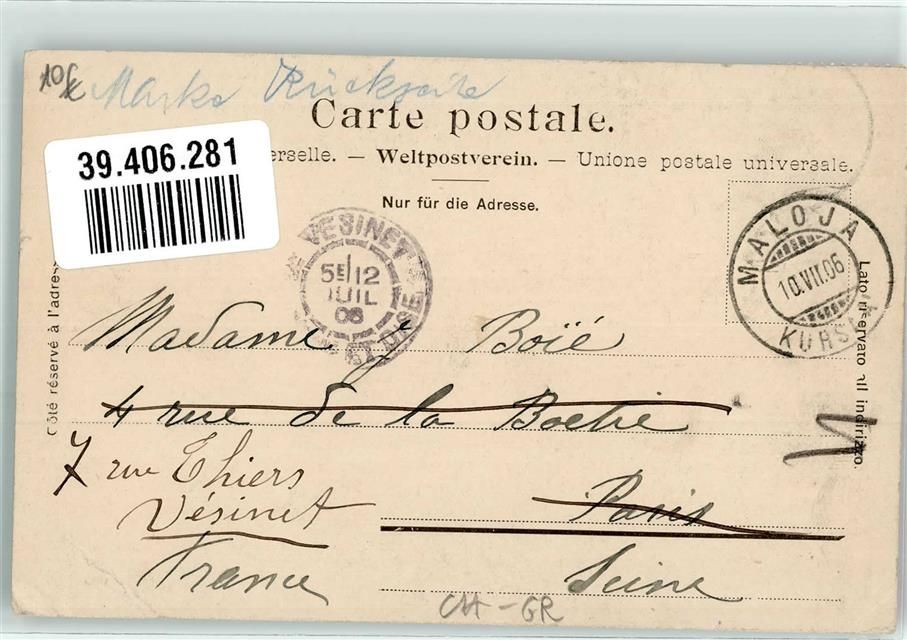 10.-
Marke Rückseite
Carte postale.
39.406.281
erselle. — Weltpostverein. — Unione postale universale.
Nur für die Adresse.
Côté réservé à l'adres
Lato riservato all indirizzo.
VESINET
SE 12
JUIL
06
ET OISE
MALOJA
10.VII.06
KURS
Madame J Boïé
4 rue de la Boetie
7 rue Thiers
Paris
Vésinet
France
Seine
CH-GR